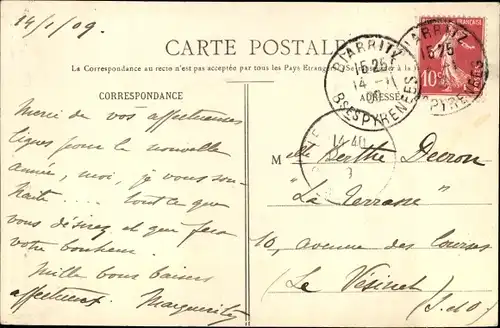 14/1/09.
CARTE POSTALE
La Correspondance au recto n'est pas acceptée par tous les Pays Etrangers (Se
à la
CORRESPONDANCE
ADRESSE
BIARRITZ
15 25
14 -1
09
Bses PYRENEES
BIARRITZ
15 25
Bses PYRENEES
10c
14 40
Merci de vos affectueuses
lignes pour la nouvelle
année, moi, je vous sou-
haite .... tout ce que
vous désirez et que fera
votre bonheur.
Mille bons baisers
affectueux. Marguerite
Melle Berthe
"La Terrasse"
10, avenue des Courses
(Le Vésinet
(S. et O.)